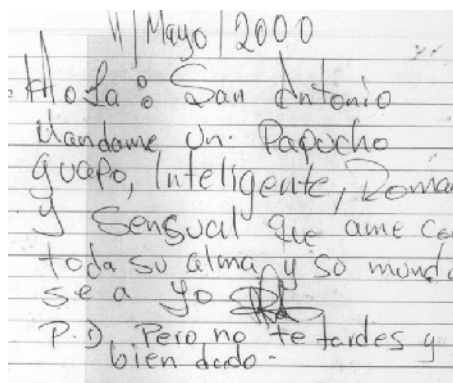 11 | Mayo | 2000
Hola: San Antonio
Mandame Un Papucho
guapo, Inteligente, Roman
y Sensual que ame con
toda su alma y so mundo
sea yo
P.D. Pero no te tardes y
bien dado.